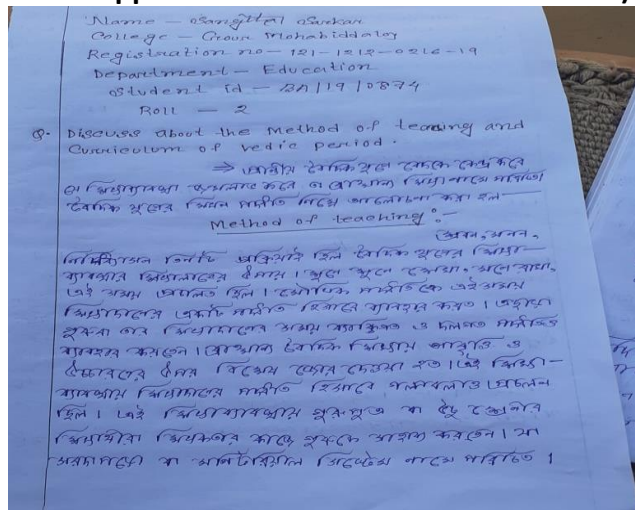 Name – Sangita Sarkar
College – Gour Mohabiddaloy
Registration no – 121-1212-0216-19
Department – Education
Student id – BA/19/0874
Roll – 2
Q- Discuss about the Method of teaching and
Curriculum of vedic period.
⇒ প্রাচীন বৈদিক যুগে বেদকে কেন্দ্র করে
যে শিক্ষাব্যবস্থা গড়ে ওঠে তা ব্রাহ্মণ্য শিক্ষা নামে পরিচিত।
বৈদিক যুগের শিক্ষন পদ্ধতি নিয়ে আলোচনা করা হল
Method of teaching :-
শ্রবন, মনন,
নিদিধ্যাসন তিনটি প্রক্রিয়াই ছিল বৈদিক যুগের শিক্ষা-
ব্যবস্থার শিক্ষালাভের উপায়। শুনে শুনে শেখা, মনে রাখা,
এই সময় প্রচলিত ছিল। মৌখিক পদ্ধতিকে এই সময়
শিক্ষাদানের একটি পদ্ধতি হিসাবে ব্যবহার করত। এছাড়া
গুরুরা তার শিক্ষাদানের সময় ব্যক্তিগত ও দলগত পদ্ধতির
ব্যবহার করতেন। ব্রাহ্মণ্য বৈদিক শিক্ষায় আবৃত্তি ও
উচ্চারণের উপর বিশেষ জোর দেওয়া হত। এই শিক্ষা-
ব্যবস্থায় শিক্ষাদানের পদ্ধতি হিসাবে গল্পবলাও প্রচলন
ছিল। এই শিক্ষাব্যবস্থায় গুরুপুত্র বা উঁচু শ্রেণীর
শিক্ষার্থীরা শিক্ষকতার কাজে গুরুকে সাহায্য করতেন। যা
সরদারপড়ো বা মনিটরিয়াল সিস্টেম নামে পরিচিত।